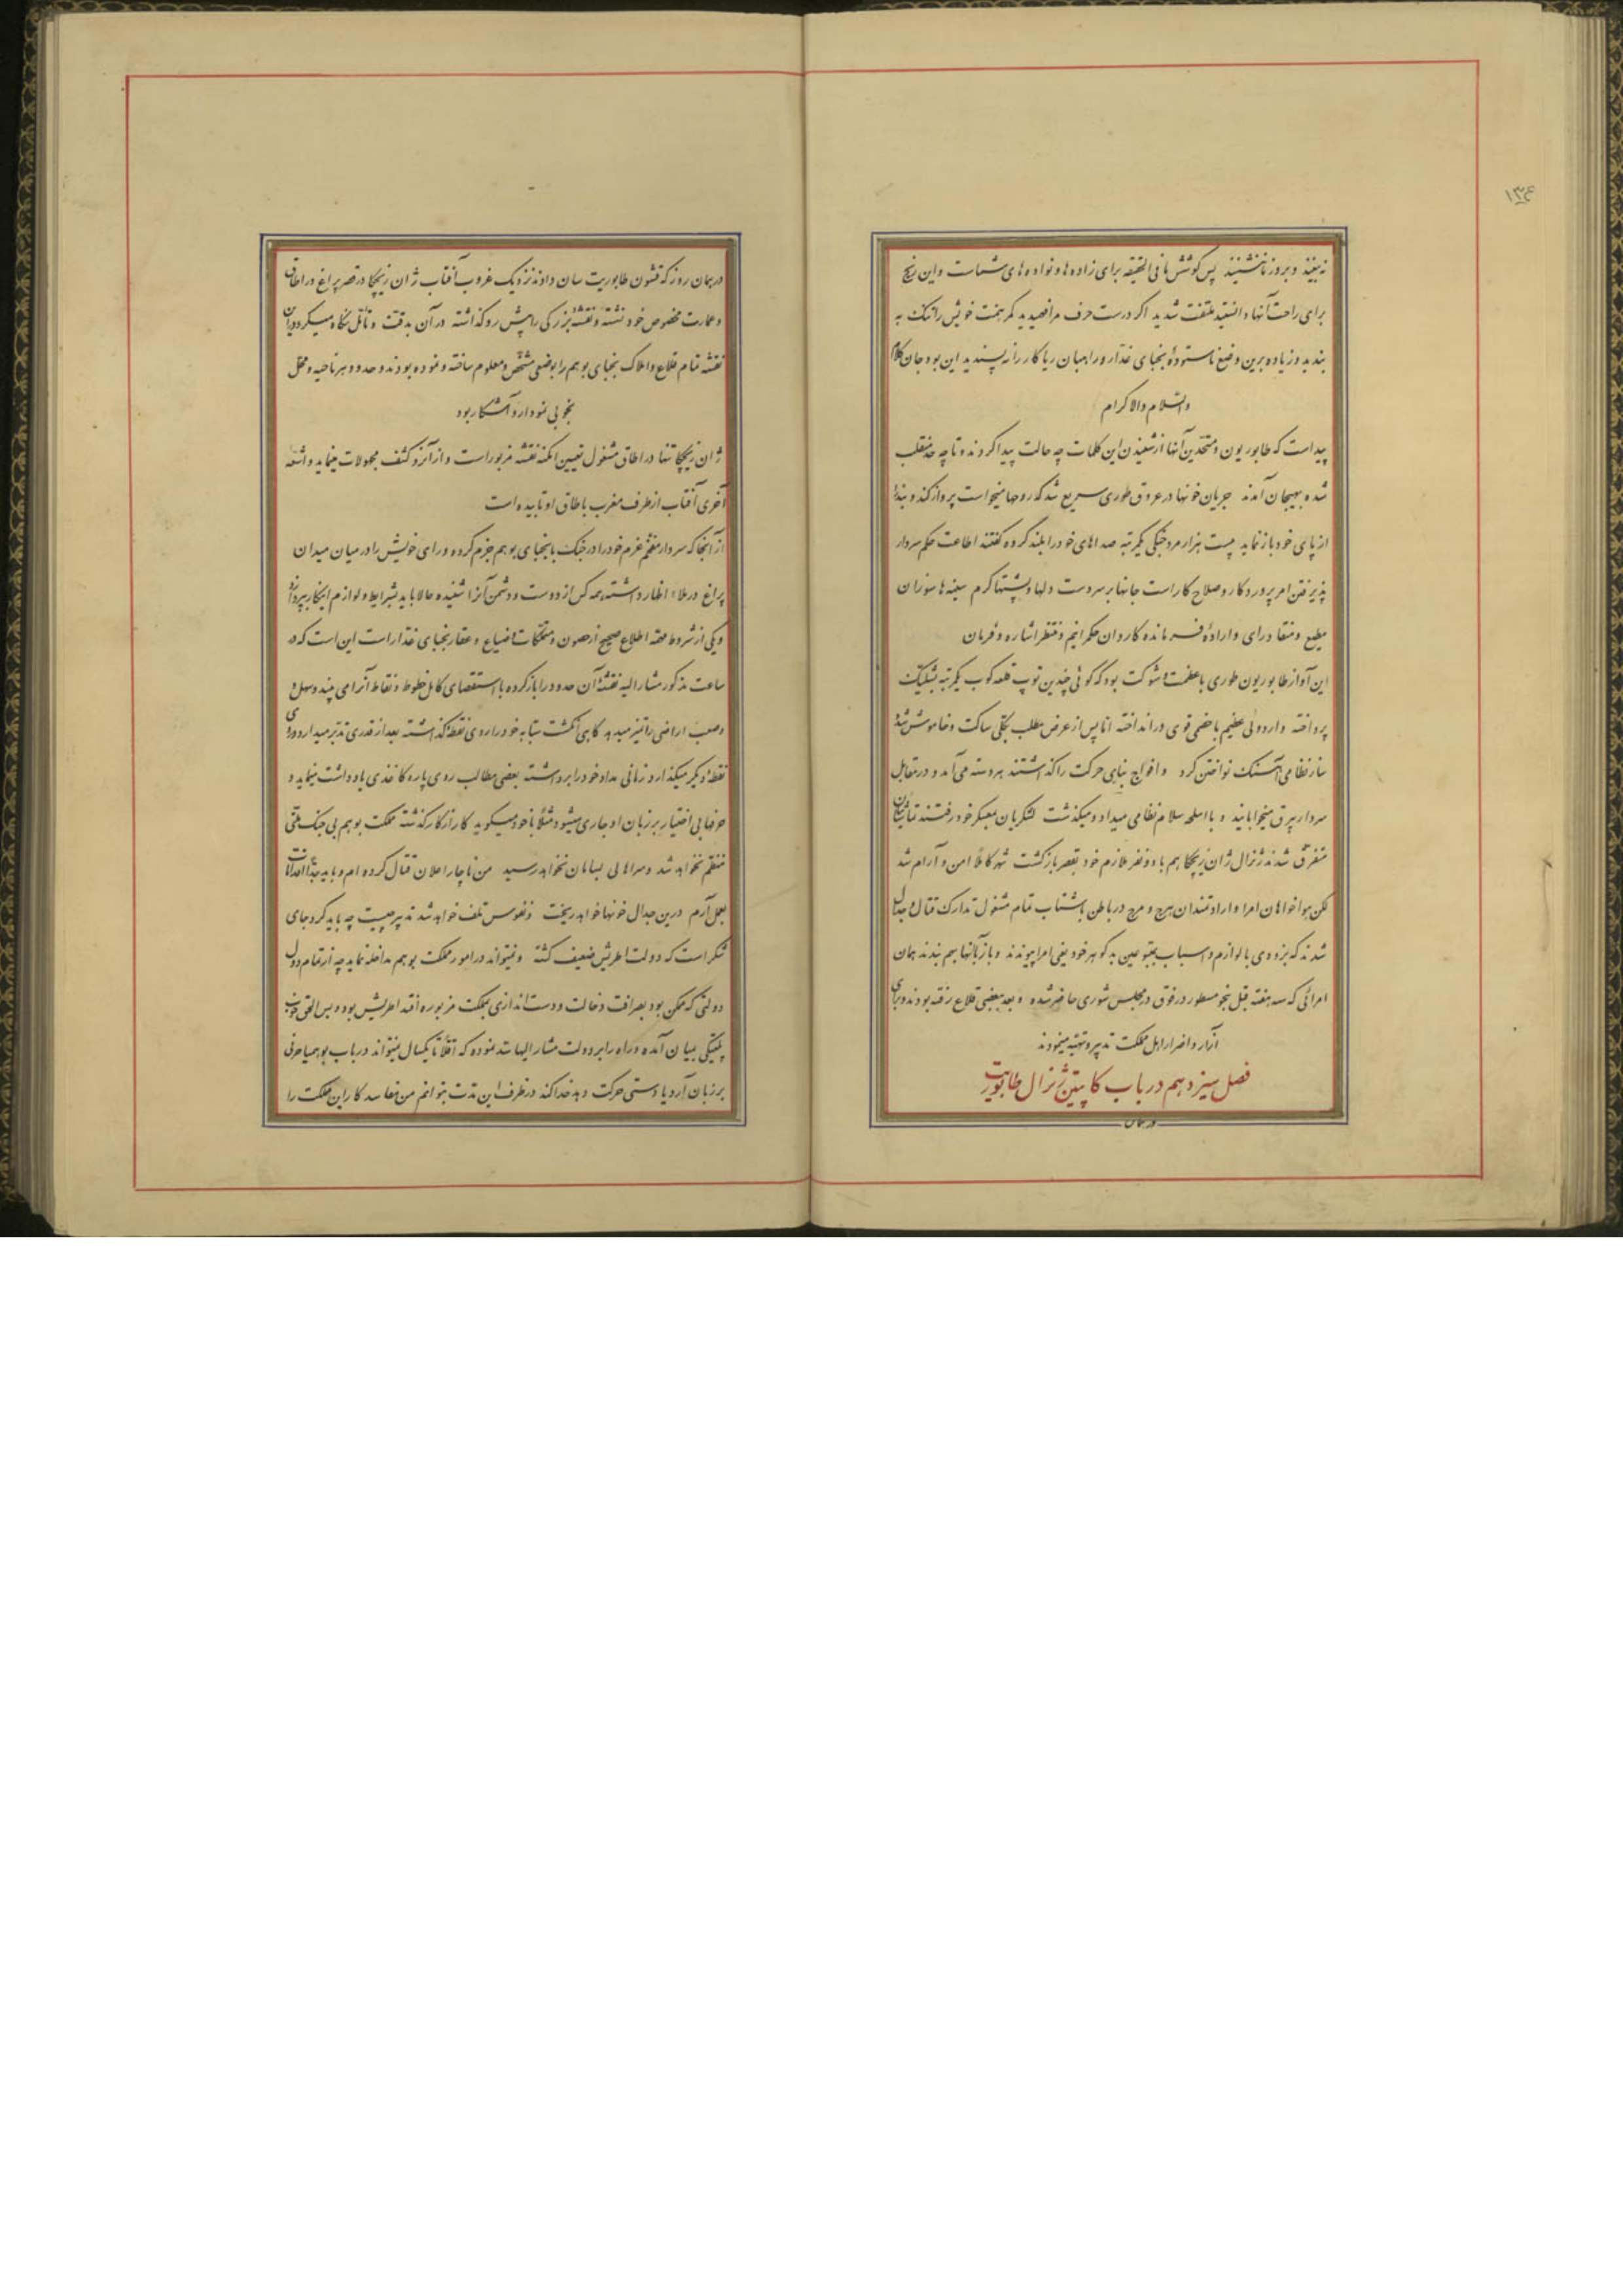 ۱۳۴
نه بینند و بروز ما ننشینند پس کوشش ما فی الحقیقه برای زاده ها و نواده های شماست و این رنج
برای راحت آنها دانستید ملتفت شدید اگر درست حرف مرا فهمیدید کمر همت خویش را تنگ به
بندید و زیاده برین وضع ناستوده نجبای غدار و راهبان ریاکار را نه پسندید این بود جان کلام
والسلام والاکرام
پیداست که طابوریون و متحدین آنها از شنیدن این کلمات چه حالت پیدا کردند و تا چه حد منقلب
شده بهیجان آمدند جریان خونها در عروق طوری سریع شد که روحها میخواست پرواز کند و بند
از پای خود باز نماید بیست هزار مرد جنگی یکمرتبه صداهای خود را بلند کرده گفتند اطاعت حکم سردار
پذیرفتن امر پروردگار و صلاح کار است جانها بر سر دست و لبها و پشتها گرم سینه ها سوزان
مطیع و منقاد رای و اراده فرمانده کاردان حکمرانیم و منتظر اشاره و فرمان
این آواز طابوریون طوری با عظمت و شوکت بود که گوئی چندین توپ قلعه کوب یکمرتبه بشلیک
پرداخته و اردوئی عظیم با خصمی قوی در انداخته اما پس از عرض مطلب بکلی ساکت و خاموش شدند
ساز نظامی آهنگ نواختن کرد و افواج بنای حرکت را گذاشتند هر دسته می آمد و در مقابل
سردار بیرق میخوابانید و با اسلحه سلام نظامی میداد و میگذشت لشکریان بمعسکر خود رفتند تماشائیان
متفرق شدند ژنرال ژان زیچکا هم با دو نفر ملازم خود بقصر بازگشت شهر کاملا امن و آرام شد
لکن هواخواهان امرا و ارادتمندان هرج و مرج در باطن باشتاب تمام مشغول تدارک قتال و جدال
شدند که بزودی با لوازم و اسباب بمتبوعین بد گوهر خود یعنی امرا پیوندند و باز با آنها بهم بندند همان
امرائی که سه هفته قبل بنحو مسطور در فوق در مجلس شوری حاضر شده و بعد ببعضی قلاع رفته بودند و برای
آزار و اضرار اهل مملکت تدبیر و تهیه مینمودند
فصل سیزدهم در باب کاپیتن ژنرال طابوریت
در همان
در همان روز که قشون طابوریت سان دادند نزدیک غروب آفتاب ژان زیچکا در قصر پراغ در اطاق
و عمارت مخصوص خود نشسته و نقشه بزرگی را پیش رو گذاشته در آن بدقت و تأمل نگاه میکرد و در آن
نقشه تمام قلاع و املاک نجبای بوهم را بوضعی مشخص و معلوم ساخته و نموده بودند و حدود هر ناحیه و محل
بخوبی نمودار و آشکار بود
ژان زیچکا تنها در اطاق مشغول تعیین امکنه نقشه مزبور است و از آنرو کشف مجهولات مینماید و اشعه
آخری آفتاب از طرف مغرب باطاق او تابیده است
از آنجا که سردار مفخم عزم خود را در جنگ با نجبای بوهم جزم کرده و رای خویش را در میان میدان
پراغ در ملاء اظهار داشته همه کس از دوست و دشمن آنرا شنیده حالا باید بشرایط و لوازم اینکار بپردازد
و یکی از شروط مهمه اطلاع صحیح از حصون و متملکات و ضیاع و عقار نجبای غدار است این است که در
ساعت مذکور مشار الیه نقشه آن حدود را باز کرده با استقصای کامل خطوط و نقاط آنرا می بیند و سهل و
صعب اراضی را تمیز میدهد گاهی انگشت سبابه خود را روی نقطه گذاشته بعد از قدری تدبر میدارد و روی
نقطه دیگر میگذارد و زمانی مداد خود را برداشته بعضی مطالب روی پاره کاغذی یادداشت مینماید و
حرفها بی اختیار بر زبان او جاری میشود مثلا با خود میگوید کار از کار گذشته مملکت بوهم بی جنگ ملتی
منظم نخواهد شد و سر اهالی بسامان نخواهد رسید من ناچار اعلان قتال کرده ام و باید جدا اقدامات
بعمل آرم درین جدال خونها خواهد ریخت و نفوس تلف خواهد شد تدبیر چیست چه باید کرد جای
شکر است که دولت اطریش ضعیف گشته و نمیتواند در امور مملکت بوهم مداخله نماید چه از تمام دول
دولتی که ممکن بود بصرافت دخالت و دست اندازی بمملکت مزبوره افتد اطریش بود و بس الحق خوب
پلتیکی بمیان آمده و راه را بر دولت مشار الیها سد نموده که اقلا تا یکسال نمیتواند در باب بوهمیا حرفی
بر زبان آرد یا دستی حرکت دهد خدا کند در ظرف این مدت بتوانم من مفاسد کار این مملکت را